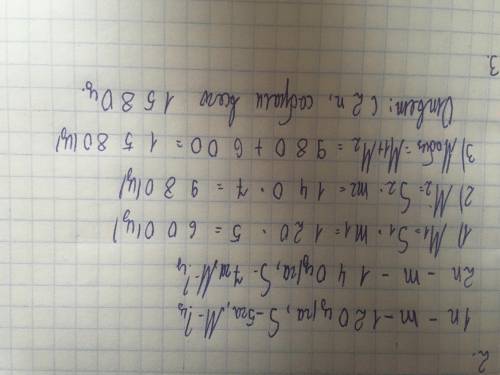 2.
1п - m - 120 ц/га, S - 5га, M - ? ц
2п - m - 140 ц/га, S - 7га M - ? ц
1) M₁ = S₁ · m₁ = 120 · 5 = 600 (ц)
2) M₂ = S₂ · m₂ = 140 · 7 = 980 (ц)
3) Mобщ = M₁ + M₂ = 980 + 600 = 1580 (ц)
Ответ: с 2 п, собрали всего 1580 ц.
3.